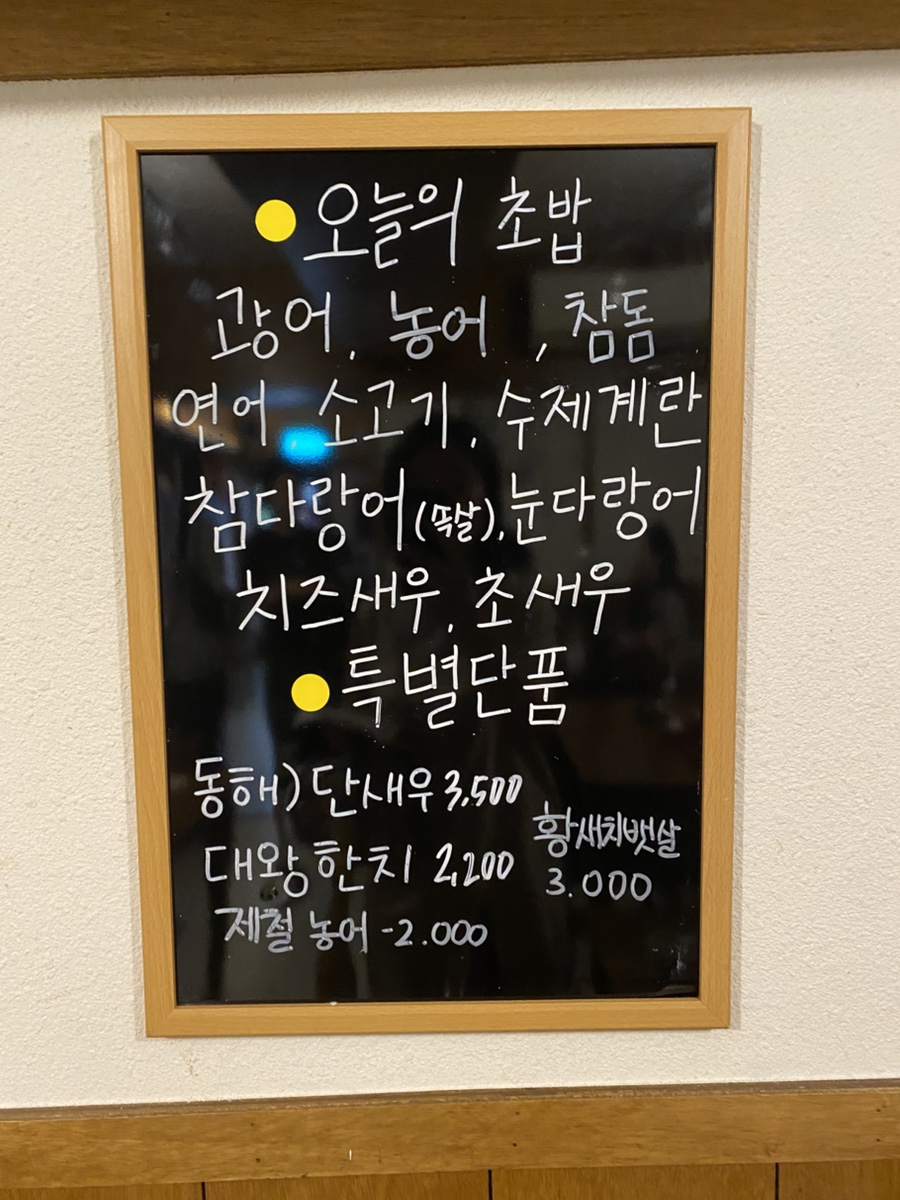 오늘의 초밥
광어, 농어, 참돔
연어, 소고기, 수제계란
참다랑어(뚝살), 눈다랑어
치즈새우, 초새우
특별단품
동해) 단새우 3,500
대왕한치 2,200
황새치뱃살
3.000
제철 농어 -2.000